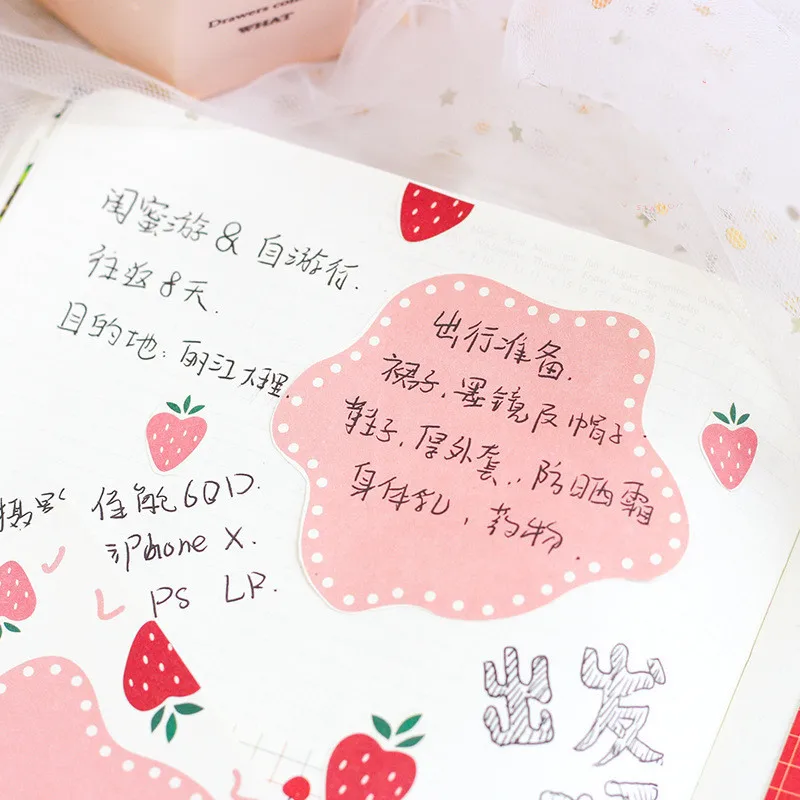 Drawers con
WHAT
闺蜜游 & 自游行.
往返8天.
目的地: 丽江大理.
出行准备.
裙子, 墨镜及帽子.
鞋子, 厚外套, 防晒霜
身体乳, 药物.
佳能60D.
iPhone X.
PS LR.
出发